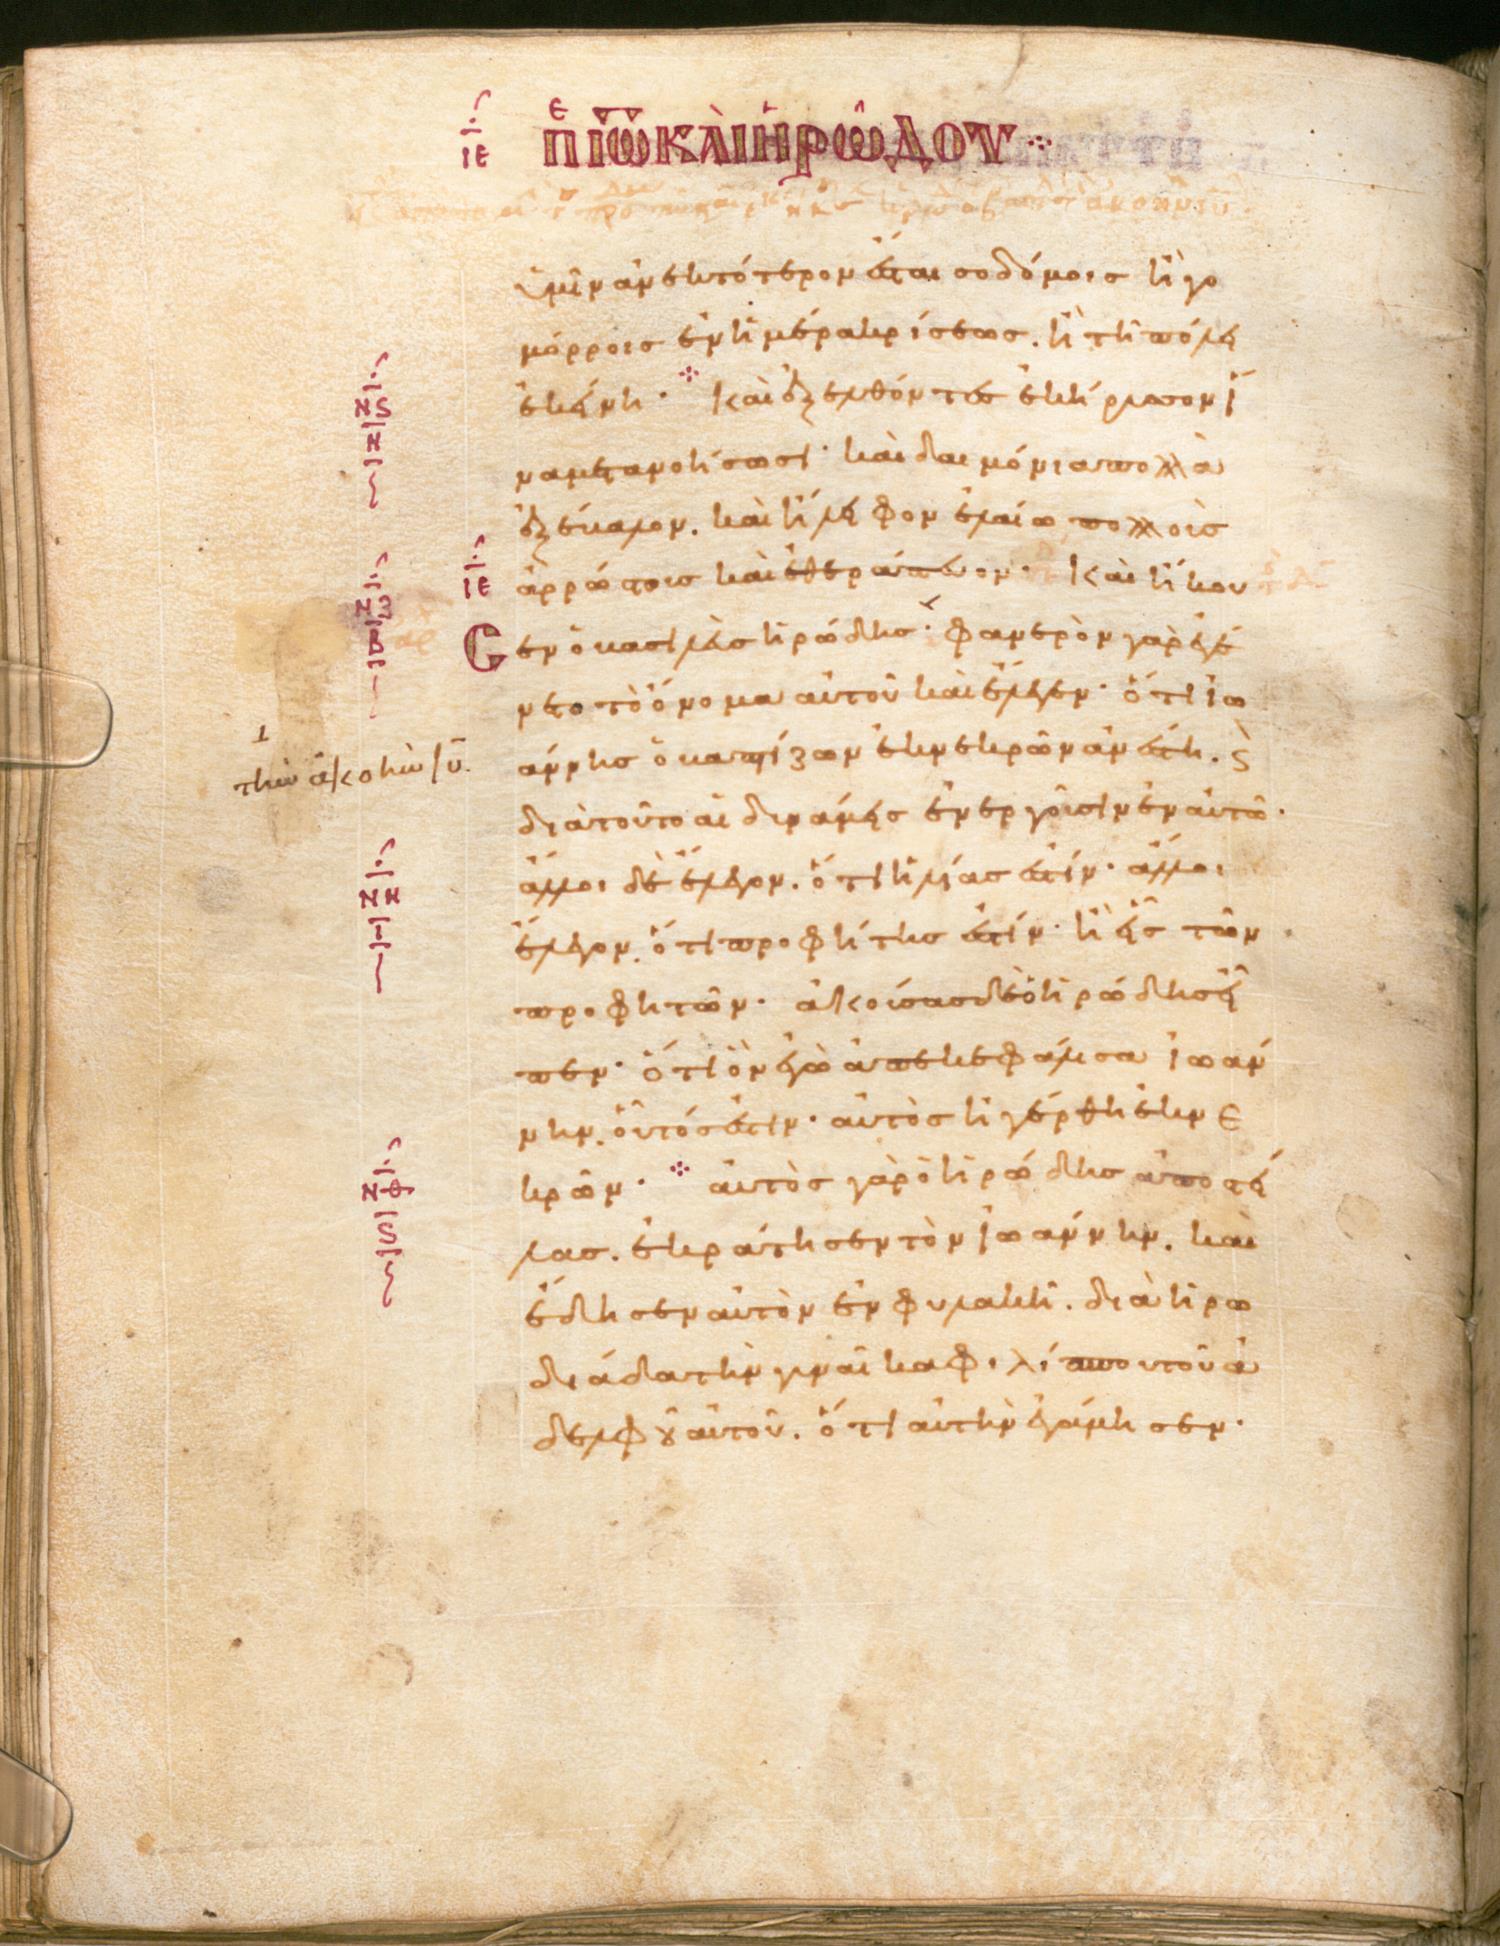 ιε
πε ιω και ηρωδου
ὑμῖν ἀνεκτότερον ἔσται σοδόμοις ἢ γο
μόρροις ἐν ἡμέρα κρίσεως. ἢ τῆ πόλει
ἐκείνη· καὶ ἐξελθόντες ἐκήρυσσον ἵ
να μετανοήσωσι· καὶ δαιμόνια πολλὰ
ἐξέβαλον. καὶ ἤλειφον ἐλαίω πολλοὺς
ἀρρώστους καὶ ἐθεράπευον· Καὶ ἤκου
ιε
σεν ὁ βασιλεὺς ἡρώδης· φανερὸν γὰρ ἐγέ
νετο τὸ ὄνομα αὐτοῦ καὶ ἔλεγεν· ὅτι ἰω
άννης ὁ βαπτίζων ἐκ νεκρῶν ἀνέστη. ϛ
τὴν ἀκοὴν ιυ
διὰ τοῦτο αἱ δυνάμεις ἐνεργοῦσιν ἐν αὐτῶ·
ἄλλοι δὲ ἔλεγον. ὅτι ἡλίας ἐστίν· ἄλλοι
ἔλεγον. ὅτι προφήτης ἐστίν· ἢ εἷς τῶν
προφητῶν· ἀκούσας δὲ ὁ ἡρώδης εἶ
πεν· ὅτι ὃν ἐγὼ ἀπεκεφάλισα ἰωάν
νην. οὗτός ἐστιν· αὐτὸς ἠγέρθη ἐκ νε
κρῶν· αὐτὸς γὰρ ὁ ἡρώδης ἀποστεί
λας. ἐκράτησεν τὸν ἰωάννην. καὶ
ἔδησεν αὐτὸν ἐν φυλακῆ. διὰ ἡρω
διάδα τὴν γυναῖκα φιλίππου τοῦ ἀ
δελφοῦ αὐτοῦ. ὅτι αὐτὴν ἐγάμησεν·